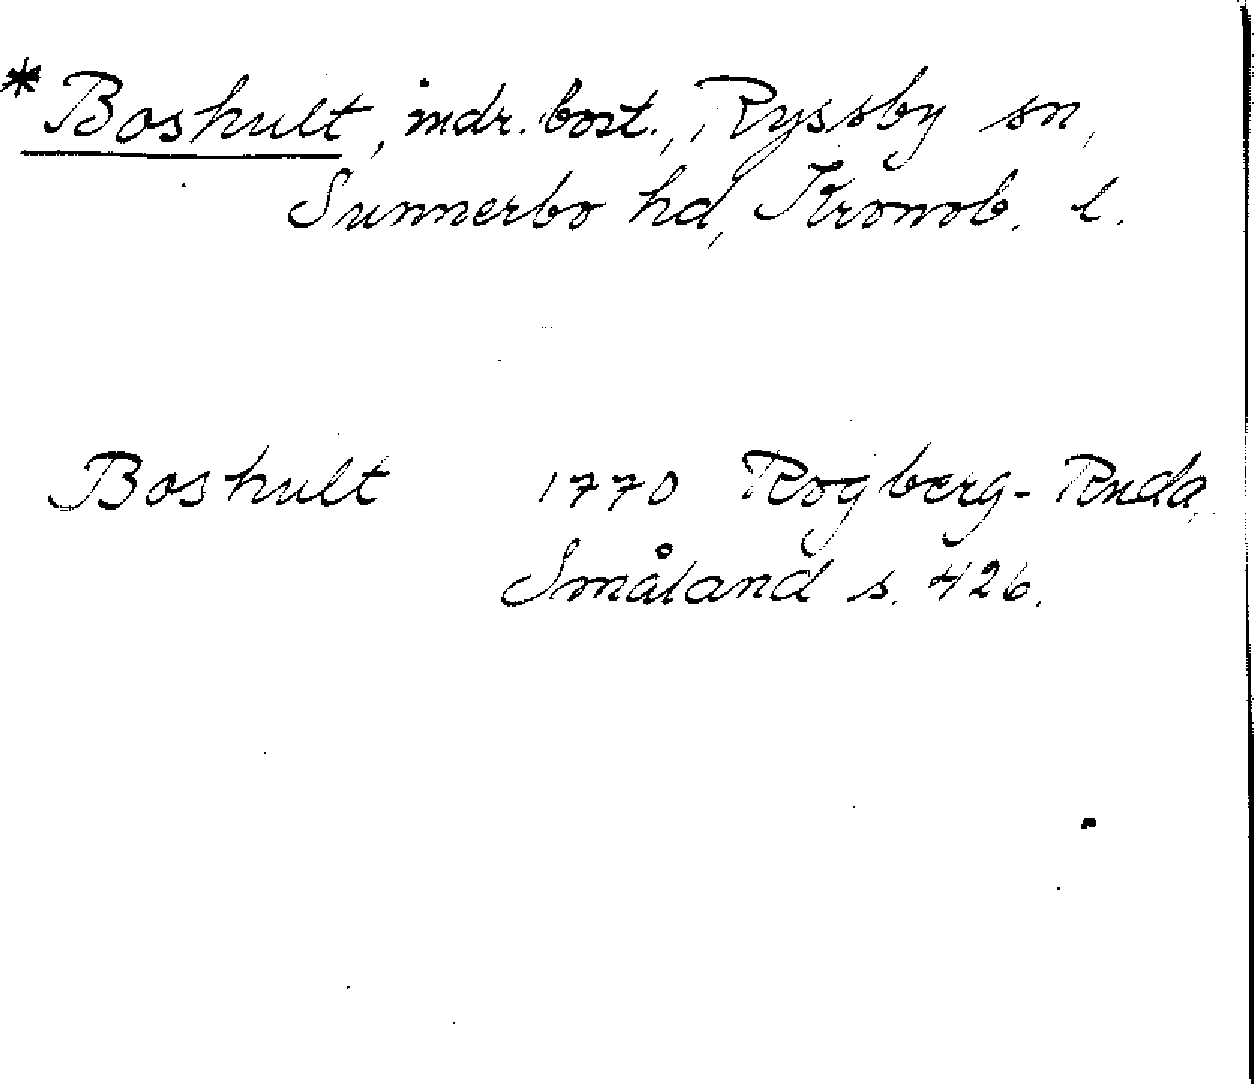 * Boshult, indr. bost., Ryssby sn,
Sunnerbo hd, Kronob. l.
Boshult 1770 Rogberg-Ruda,
Småland s. 426.